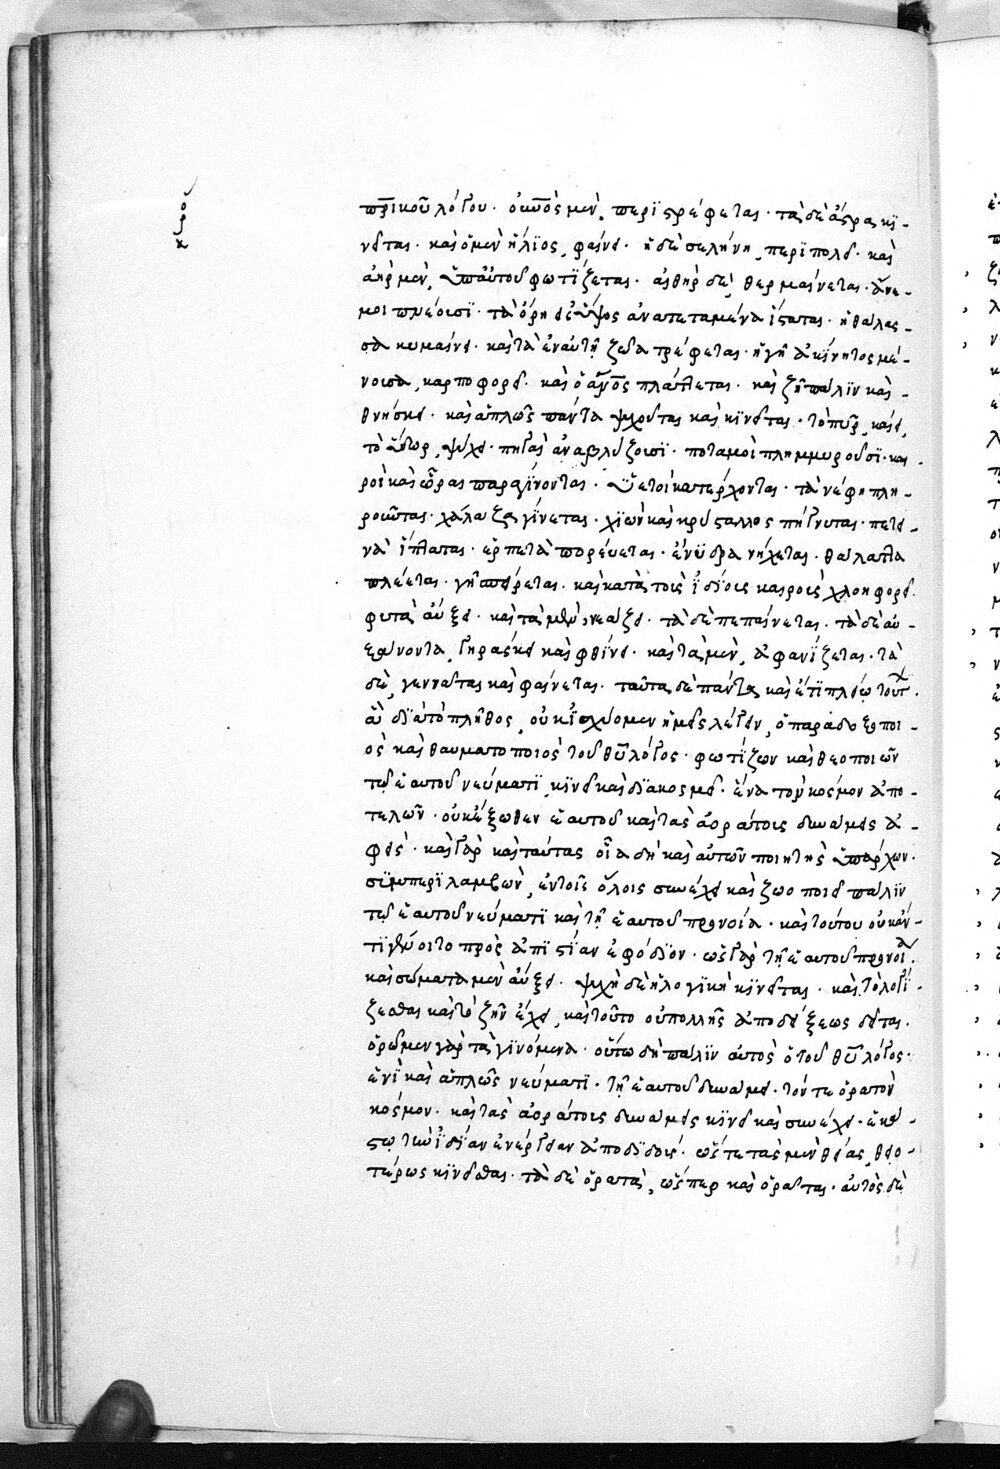 πρικοῦ λόγου· ὁ οὐνὸς μὲν, περιστρέφεται· τὰ δὲ ἄστρα κι-
νεῖται· καὶ ὁ μὲν ἥλιος, φαίνει· ἡ δὲ σελήνη, περιπολεῖ· καὶ
ἀὴρ μὲν, ὑπ' αὐτοῦ φωτίζεται· αἰθὴρ δὲ, θερμαίνεται· ἄνε-
μοι πνέουσι· τὰ ὄρη εἰς ὕψος ἀνατεταμένα ἵσταται· ἡ θάλασ-
σα κυμαίνει· καὶ τὰ ἐν αὐτῇ ζῶα τρέφεται· ἡ γῆ ἀκίνητος μέ-
νουσα, καρποφορεῖ· καὶ ὁ ἄνος πλάττεται· καὶ ζῇ πάλιν καὶ
θνήσκει· καὶ ἁπλῶς πάντα ψυχοῦται καὶ κινεῖται· τὸ πῦρ, καίει,
τὸ ὕδωρ, ψύχει· πηγαὶ ἀναβλύζουσι· ποταμοὶ πλημμυροῦσι· και
ροὶ καὶ ὧραι παραγίνονται· ὑετοὶ κατέρχονται· τὰ νέφη πλη-
ροῦται· χάλαζα γίνεται· χιὼν καὶ κρύσταλλος πήγνυται· πετει
νὰ ἵπταται· ἑρπετὰ πορεύεται· ἔνυδρα νήχεται· θάλαττα
πλέεται· γῆ σπείρεται· καὶ κατὰ τοὺς ἰδίους καιροὺς χλοηφορεῖ·
φυτὰ αὔξει· καὶ τὰ μὲν, νεάζει· τὰ δὲ πεπαίνεται· τὰ δὲ αὐ-
ξάνοντα, γηράσκει καὶ φθίνει· καὶ τὰ μὲν, ἀφανίζεται· τὰ
δὲ, γεννᾶται καὶ φαίνεται· ταῦτα δὲ πάντα καὶ ἔτι πλείω τούτ
ἃ διὰ τὸ πλῆθος, οὐκ ἰσχύομεν ἡμεῖς λέγειν, ὁ παραδοξοποι-
ὸς καὶ θαυματοποιὸς τοῦ θῦ λόγος· φωτίζων καὶ θεοποιῶν
τῷ ἑαυτοῦ νεύματι, κινεῖ καὶ διακοσμεῖ· ἕνα τὸν κόσμον ἀπο-
τελῶν· οὐκ ἔξωθεν ἑαυτοῦ καὶ τὰς ἀοράτους δυνάμεις ἀ-
φείς· καὶ γὰρ καὶ ταύτας οἷα δὴ καὶ αὐτῶν ποιητὴς ὑπάρχων·
συμπεριλαμβὼν, ἐν τοῖς ὅλοις συνέχει καὶ ζωοποιεῖ πάλιν
τῷ ἑαυτοῦ νεύματι καὶ τῇ ἑαυτοῦ προνοία· καὶ τούτου οὐκ ἄν-
τι γένοιτο πρὸς ἀπιστίαν ἐφόδιον· ὡς γὰρ τῇ ἑαυτοῦ προνοία
καὶ σώματα μὲν αὔξει· ψυχὴ δὲ ἡ λογικὴ κινεῖται· καὶ τὸ λογί
ζεσθαι καὶ τὸ ζῆν ἔχει, καὶ τοῦτο οὐ πολλῆς ἀποδείξεως δεῖται·
ὁρῶμεν γὰρ τὰ γινόμενα· οὕτω δὴ πάλιν αὐτὸς ὁ τοῦ θῦ λόγος·
ἑνὶ καὶ ἁπλῶς νεύματι· τῇ ἑαυτοῦ δυνάμει· τόν τε ὁρατὸν
κόσμον· καὶ τὰς ἀοράτους δυνάμεις κινεῖ καὶ συνέχει· ἑκά-
στῳ τὴν ἰδίαν ἐνέργειαν ἀποδιδούς· ὥστε τὰς μὲν θείας, θειο-
τέρως κινεῖσθαι· τὰ δὲ ὁρατὰ, ὥσπερ καὶ ὁρᾶται· αὐτὸς δὲ